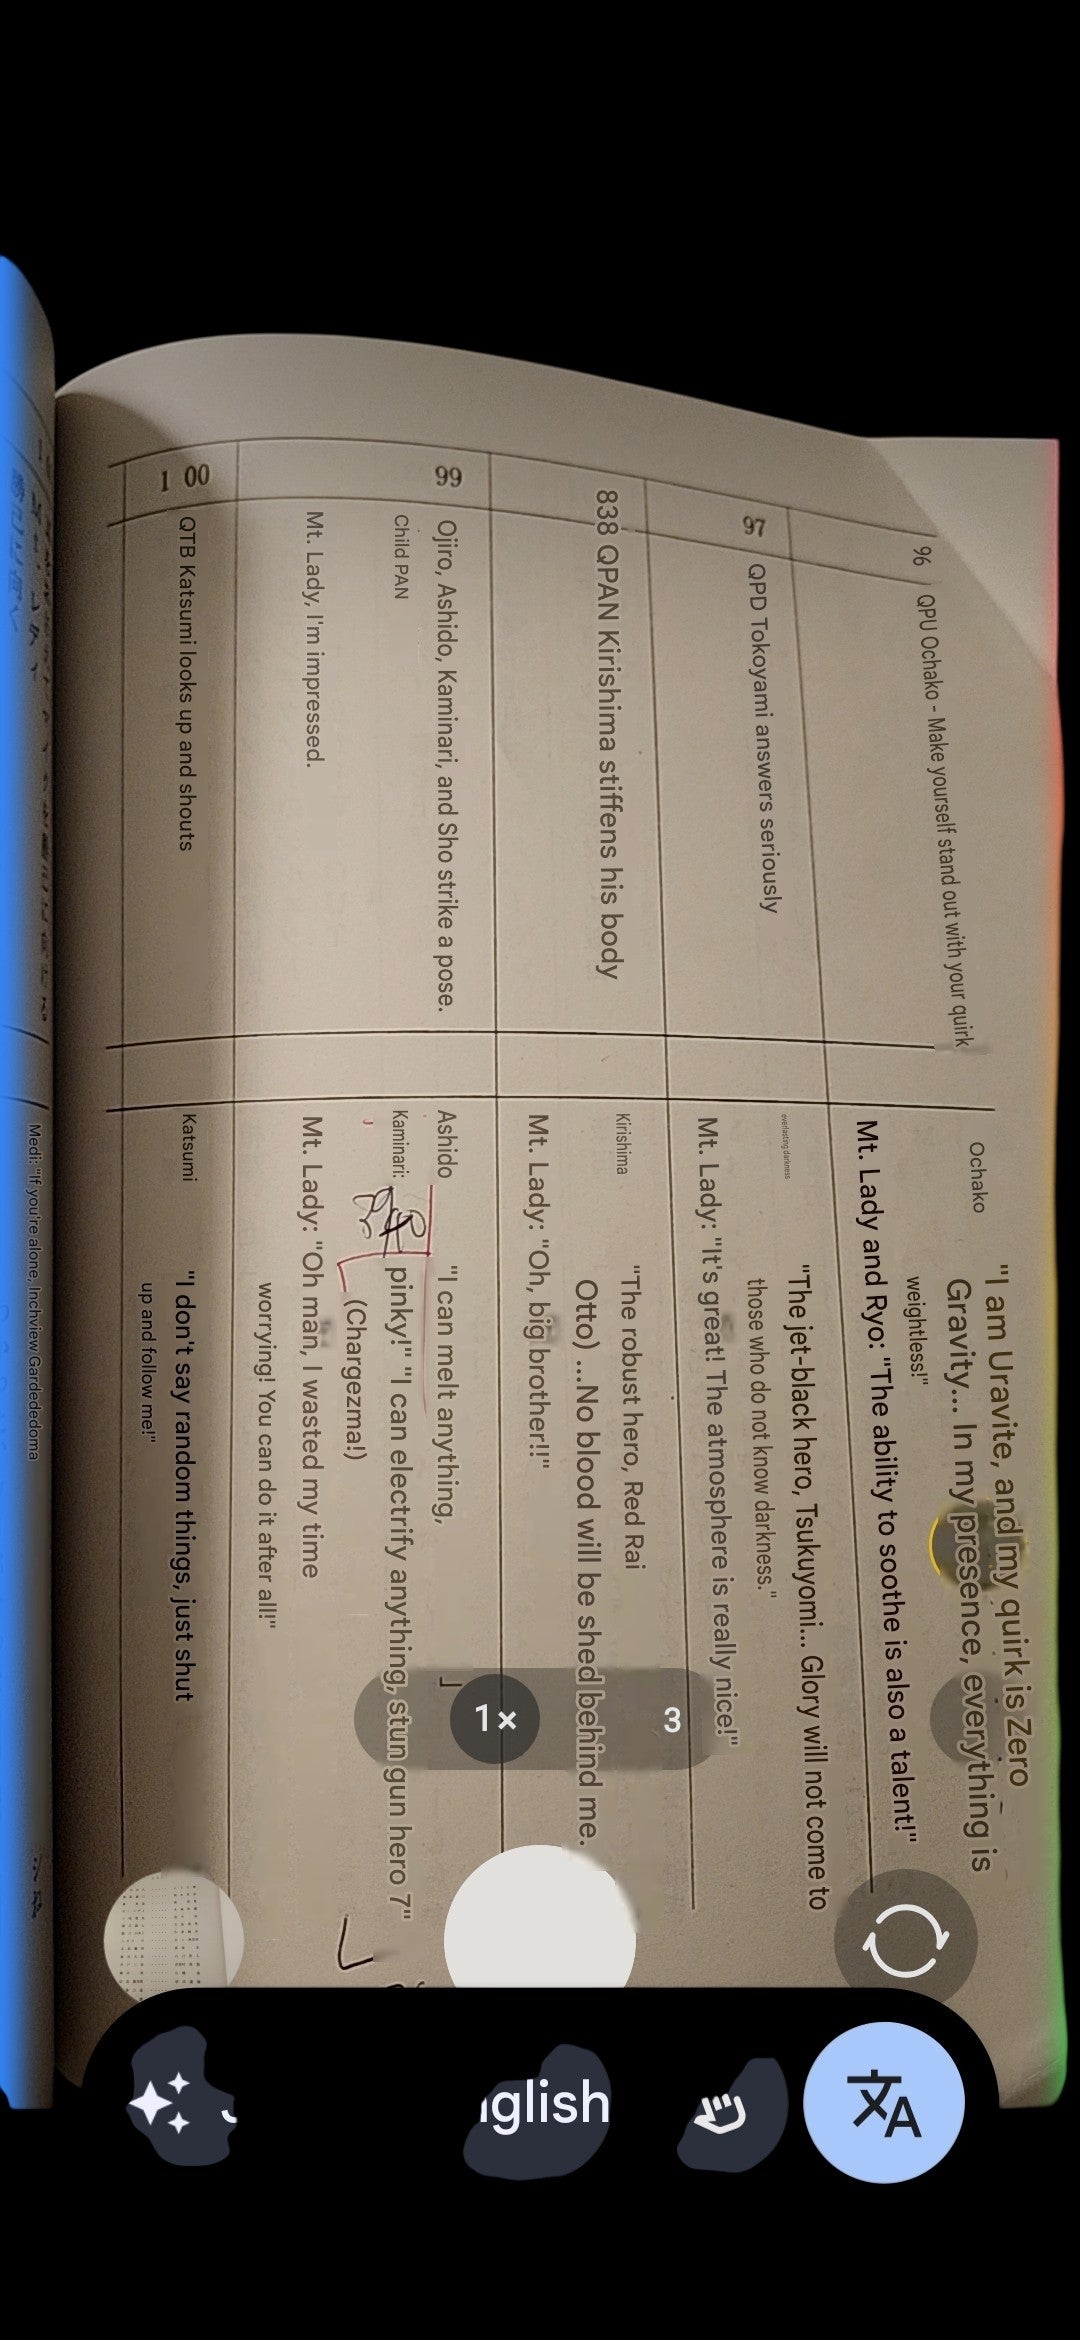 % QPU Ochako - Make yourself stand out with your quirk
Ochako
"I am Uravite, and my quirk is Zero
Gravity... In my presence, everything is
weightless!"
Mt. Lady and Ryo: "The ability to soothe is also a talent!"
97 QPD Tokoyami answers seriously
everlasting darkness
"The jet-black hero, Tsukuyomi... Glory will not come to
those who do not know darkness."
Mt. Lady: "It's great! The atmosphere is really nice!"
838 QPAN Kirishima stiffens his body
Kirishima
"The robust hero, Red Rai
Otto) ...No blood will be shed behind me.
Mt. Lady: "Oh, big brother!!"
99 Ojiro, Ashido, Kaminari, and Sho strike a pose.
Child PAN
Mt. Lady, I'm impressed.
Ashido "I can melt anything,
」
Kaminari: pinky!" "I can electrify anything, stun gun hero 7"
(Chargezma!)
Mt. Lady: "Oh man, I wasted my time
worrying! You can do it after all!"
1 00 QTB Katsumi looks up and shouts
Katsumi "I don't say random things, just shut
up and follow me!"
Medi: "If you're alone, Inchview Gardededoma
1×
3
nglish
文A